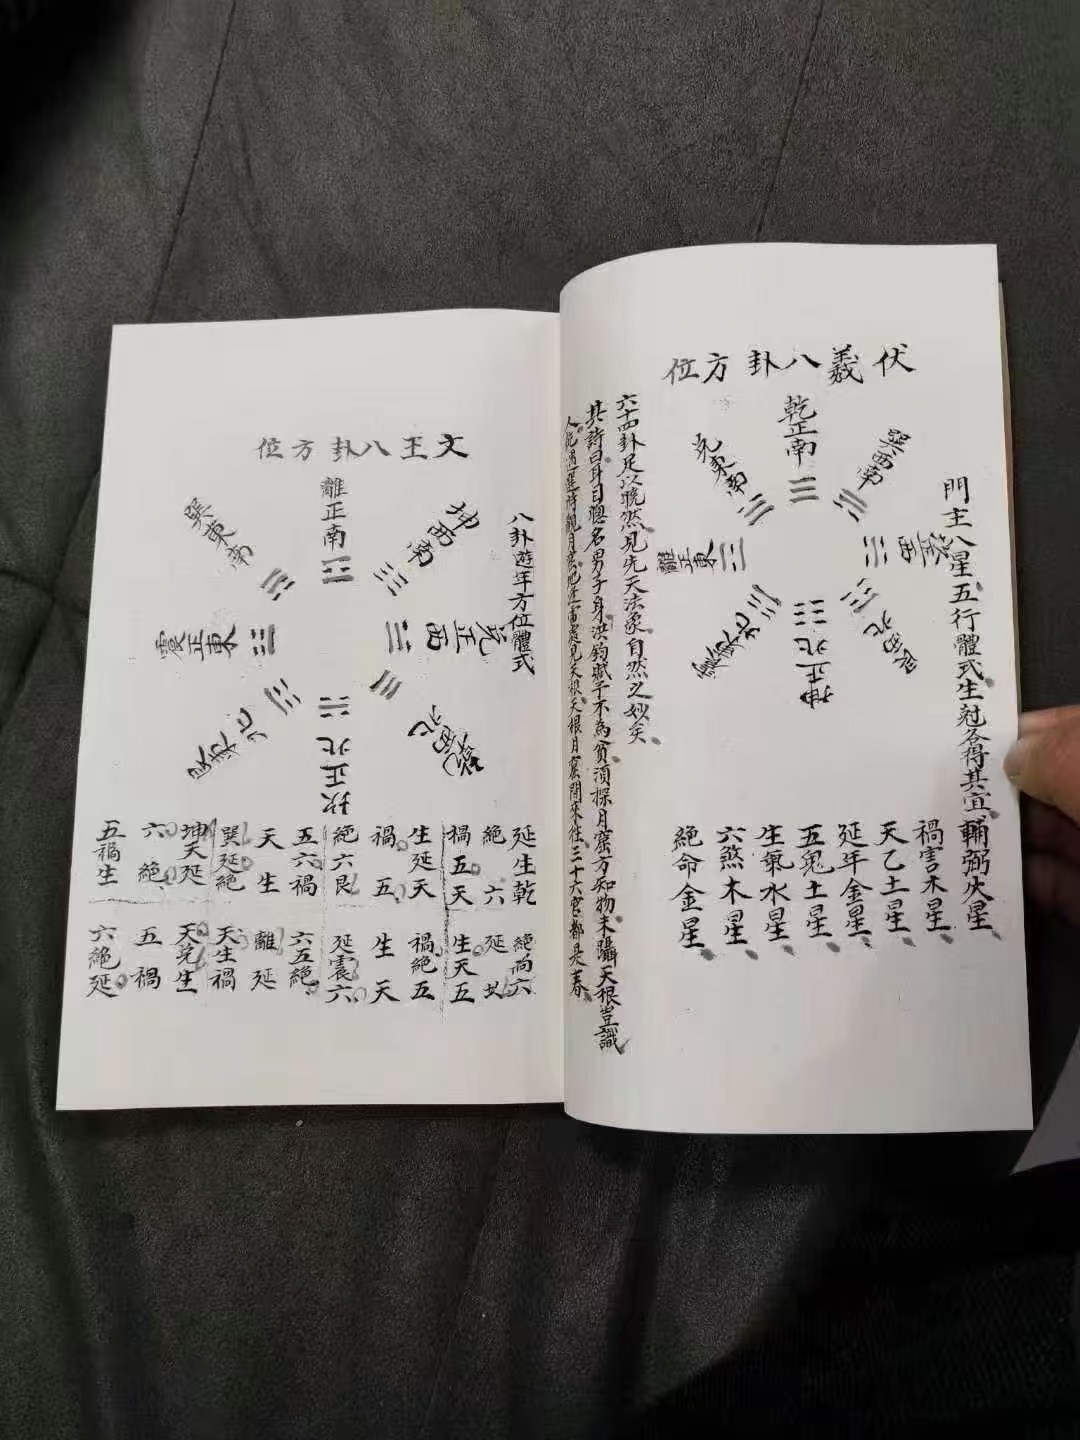 伏羲八卦方位
乾正南
兌東南
離正東
巽西南
坤正北
門主八星五行體式生尅各得其宜
輔弼火星
禍害木星
天乙土星
延年金星
五鬼土星
生氣水星
六煞木星
絕命金星
六十四卦足以曉然見先天法象自然之妙矣
其詩曰耳目聰名男子身洪鈞賦予不為貧須探月窟方知物未躡天根豈識
人乾遇巽時觀月窟地逢雷處見天根天根月窟閒來往三十六宮都是春
文王八卦方位
離正南
坤西南
巽東南
兌正西
震正東
坎正北
八卦遊年方位體式
延生乾
絕 六
禍五天
生延天
禍 五
絕六艮
五六禍
天 生
巽延絕
坤天延
六 絕
五禍生
絕尚六
延
生天五
禍絕五
生 天
延震六
六五絕
離 延
天生禍
天兌生
五 禍
六絕延